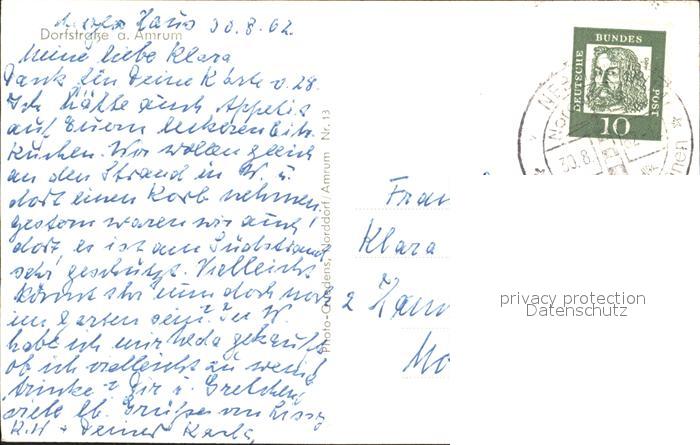 Haus 30.8.62
Dorfstraße a. Amrum
Meine liebe Klara
Dank für Deine Karte v. 28.
Ich hätte auch Appetit
auf Euern leckeren
Kuchen. Wir wollen gleich
an den Strand in W. u.
dort einen Korb nehmen.
gestern waren wir auch
dort, es ist am Südstrand
sehr geschützt. Vielleicht
könnt Ihr nun doch noch
im Garten sein? In W.
habe ich mir gekauft
ob ich vielleicht zu wenig
trinke? Dir u. Gretchen
viele lb. Grüße von Lissy
R.H + Deiner Karla
Photo-Quedens, Norddorf/Amrum Nr. 13
DEUTSCHE BUNDES POST
10
30.8.
Frau
Klara
2 Hann
privacy protection
Datenschutz